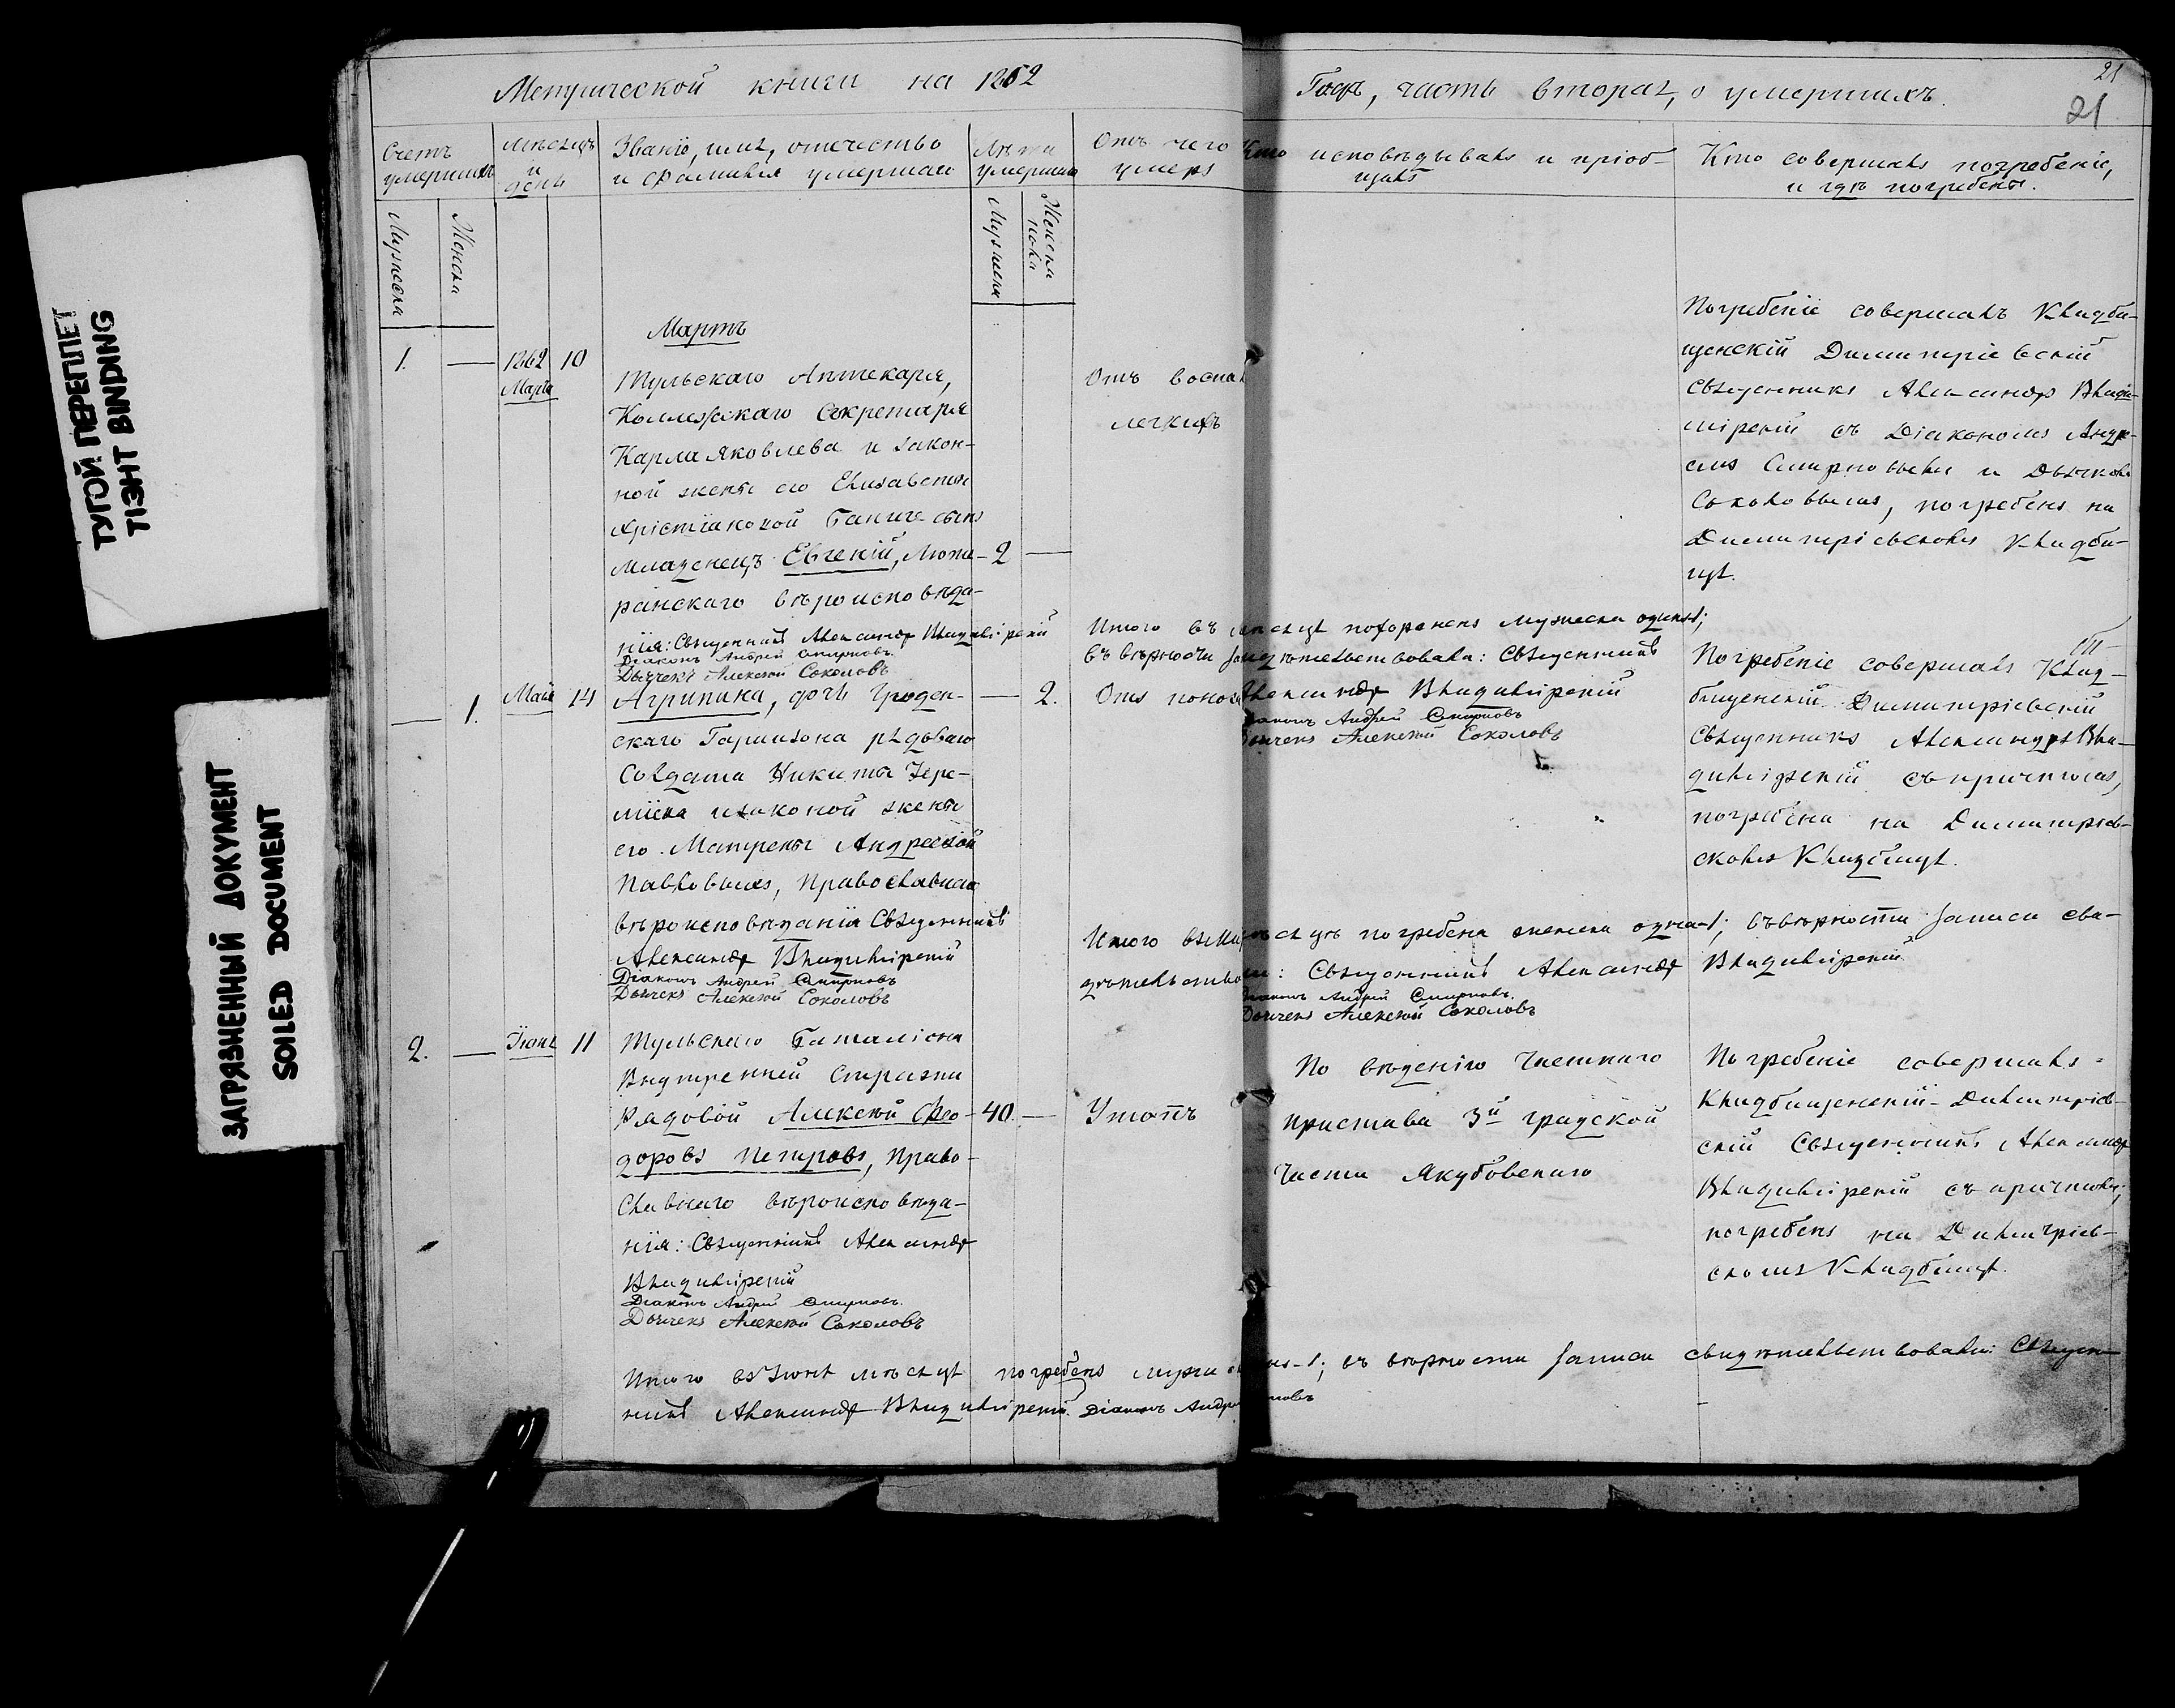 ТУГОЙ ПЕРЕПЛЕТ
TIЭHT BINDING
ЗАГРЯЗНЕННЫЙ ДОКУМЕНТ
SOILED DOCUMENT
Метрической книги на 1862
Годъ, часть вторая, о умершихъ.
21
21
Счетъ умершихъ
Мужеска
Женска
Мѣсяцъ и день
Званіе, имя, отечество
и фамилія умершаго
Лѣта умершаго
Мужеска
Женска пола
Отъ чего
умеръ
Кто исповѣдывалъ и пріоб-
щалъ
Кто совершалъ погребеніе,
и гдѣ погребены.
Мартъ
1. — 1862 Марта 10
Тульскаго Аптекаря,
Коллежскаго Секретаря
Карла Яковлева и закон-
ной жены его Елизаветы
Христіановой сынъ
младенецъ Евгеній, Люте-
ранскаго вѣроисповѣда-
нія: Священникъ Александръ Владимірскій
Діаконъ Андрей Смирновъ.
Дьячекъ Алексѣй Соколовъ
2 —
Отъ воспал
легкихъ
Погребеніе совершалъ Кладби-
щенскій Димитріевскій
Священникъ Александръ Влади-
мірскій съ Діакономъ Андре-
емъ Смирновымъ и Дьячкомъ
Соколовымъ, погребенъ на
Димитріевскомъ Кладби-
щѣ.
Итого въ мѣсяцѣ похороненъ мужеска одинъ 1;
въ вѣрности свидѣтельствовали: Священникъ
Александръ Владимірскій
Діаконъ Андрей Смирновъ
Дьячекъ Алексѣй Соколовъ
— 1. Маія 14
Агрипина, дочь Гроден-
скаго Гарнизона рядоваго
Солдата Никиты
и законой жены
его Матрены Андреевой
Павловыхъ, Православнаго
вѣроисповѣданія Священникъ
Александръ Владимірскій
Діаконъ Андрей Смирновъ
Дьячекъ Алексѣй Соколовъ
— 2.
Отъ поноса
Погребеніе совершалъ Клад-
бищенскій Димитріевскій
Священникъ Александръ Вла-
димірскій съ причтомъ,
погребена на Димитріев-
скомъ Кладбищѣ.
Итого въ Маіѣ мѣсяцѣ погребена женска одна 1; въ вѣрности записи сви-
дѣтельствовали: Священникъ Александръ Владимірскій
Діаконъ Андрей Смирновъ.
Дьячекъ Алексѣй Соколовъ
2. — Іюня 11
Тульскаго Баталіона
Внутренней Стражи
Рядовой Алексѣй Фео-
доровъ Петровъ, Право-
славнаго вѣроисповѣда-
нія: Священникъ Александръ
Владимірскій
Діаконъ Андрей Смирновъ.
Дьячекъ Алексѣй Соколовъ
40. —
Утопъ
По вѣденію Частнаго
пристава 3й градской
Части Якубовскаго
Погребеніе совершалъ
Кладбищенскій-Димитріев-
скій Священникъ Александръ
Владимірскій съ причтомъ,
погребенъ на Димитріев-
скомъ Кладбищѣ.
Итого въ Іюнѣ мѣсяцѣ погребенъ мужска одинъ-1; въ вѣрности записи свидѣтельствовали: Священ-
никъ Александръ Владимірскій. Діаконъ Андрей Смирновъ